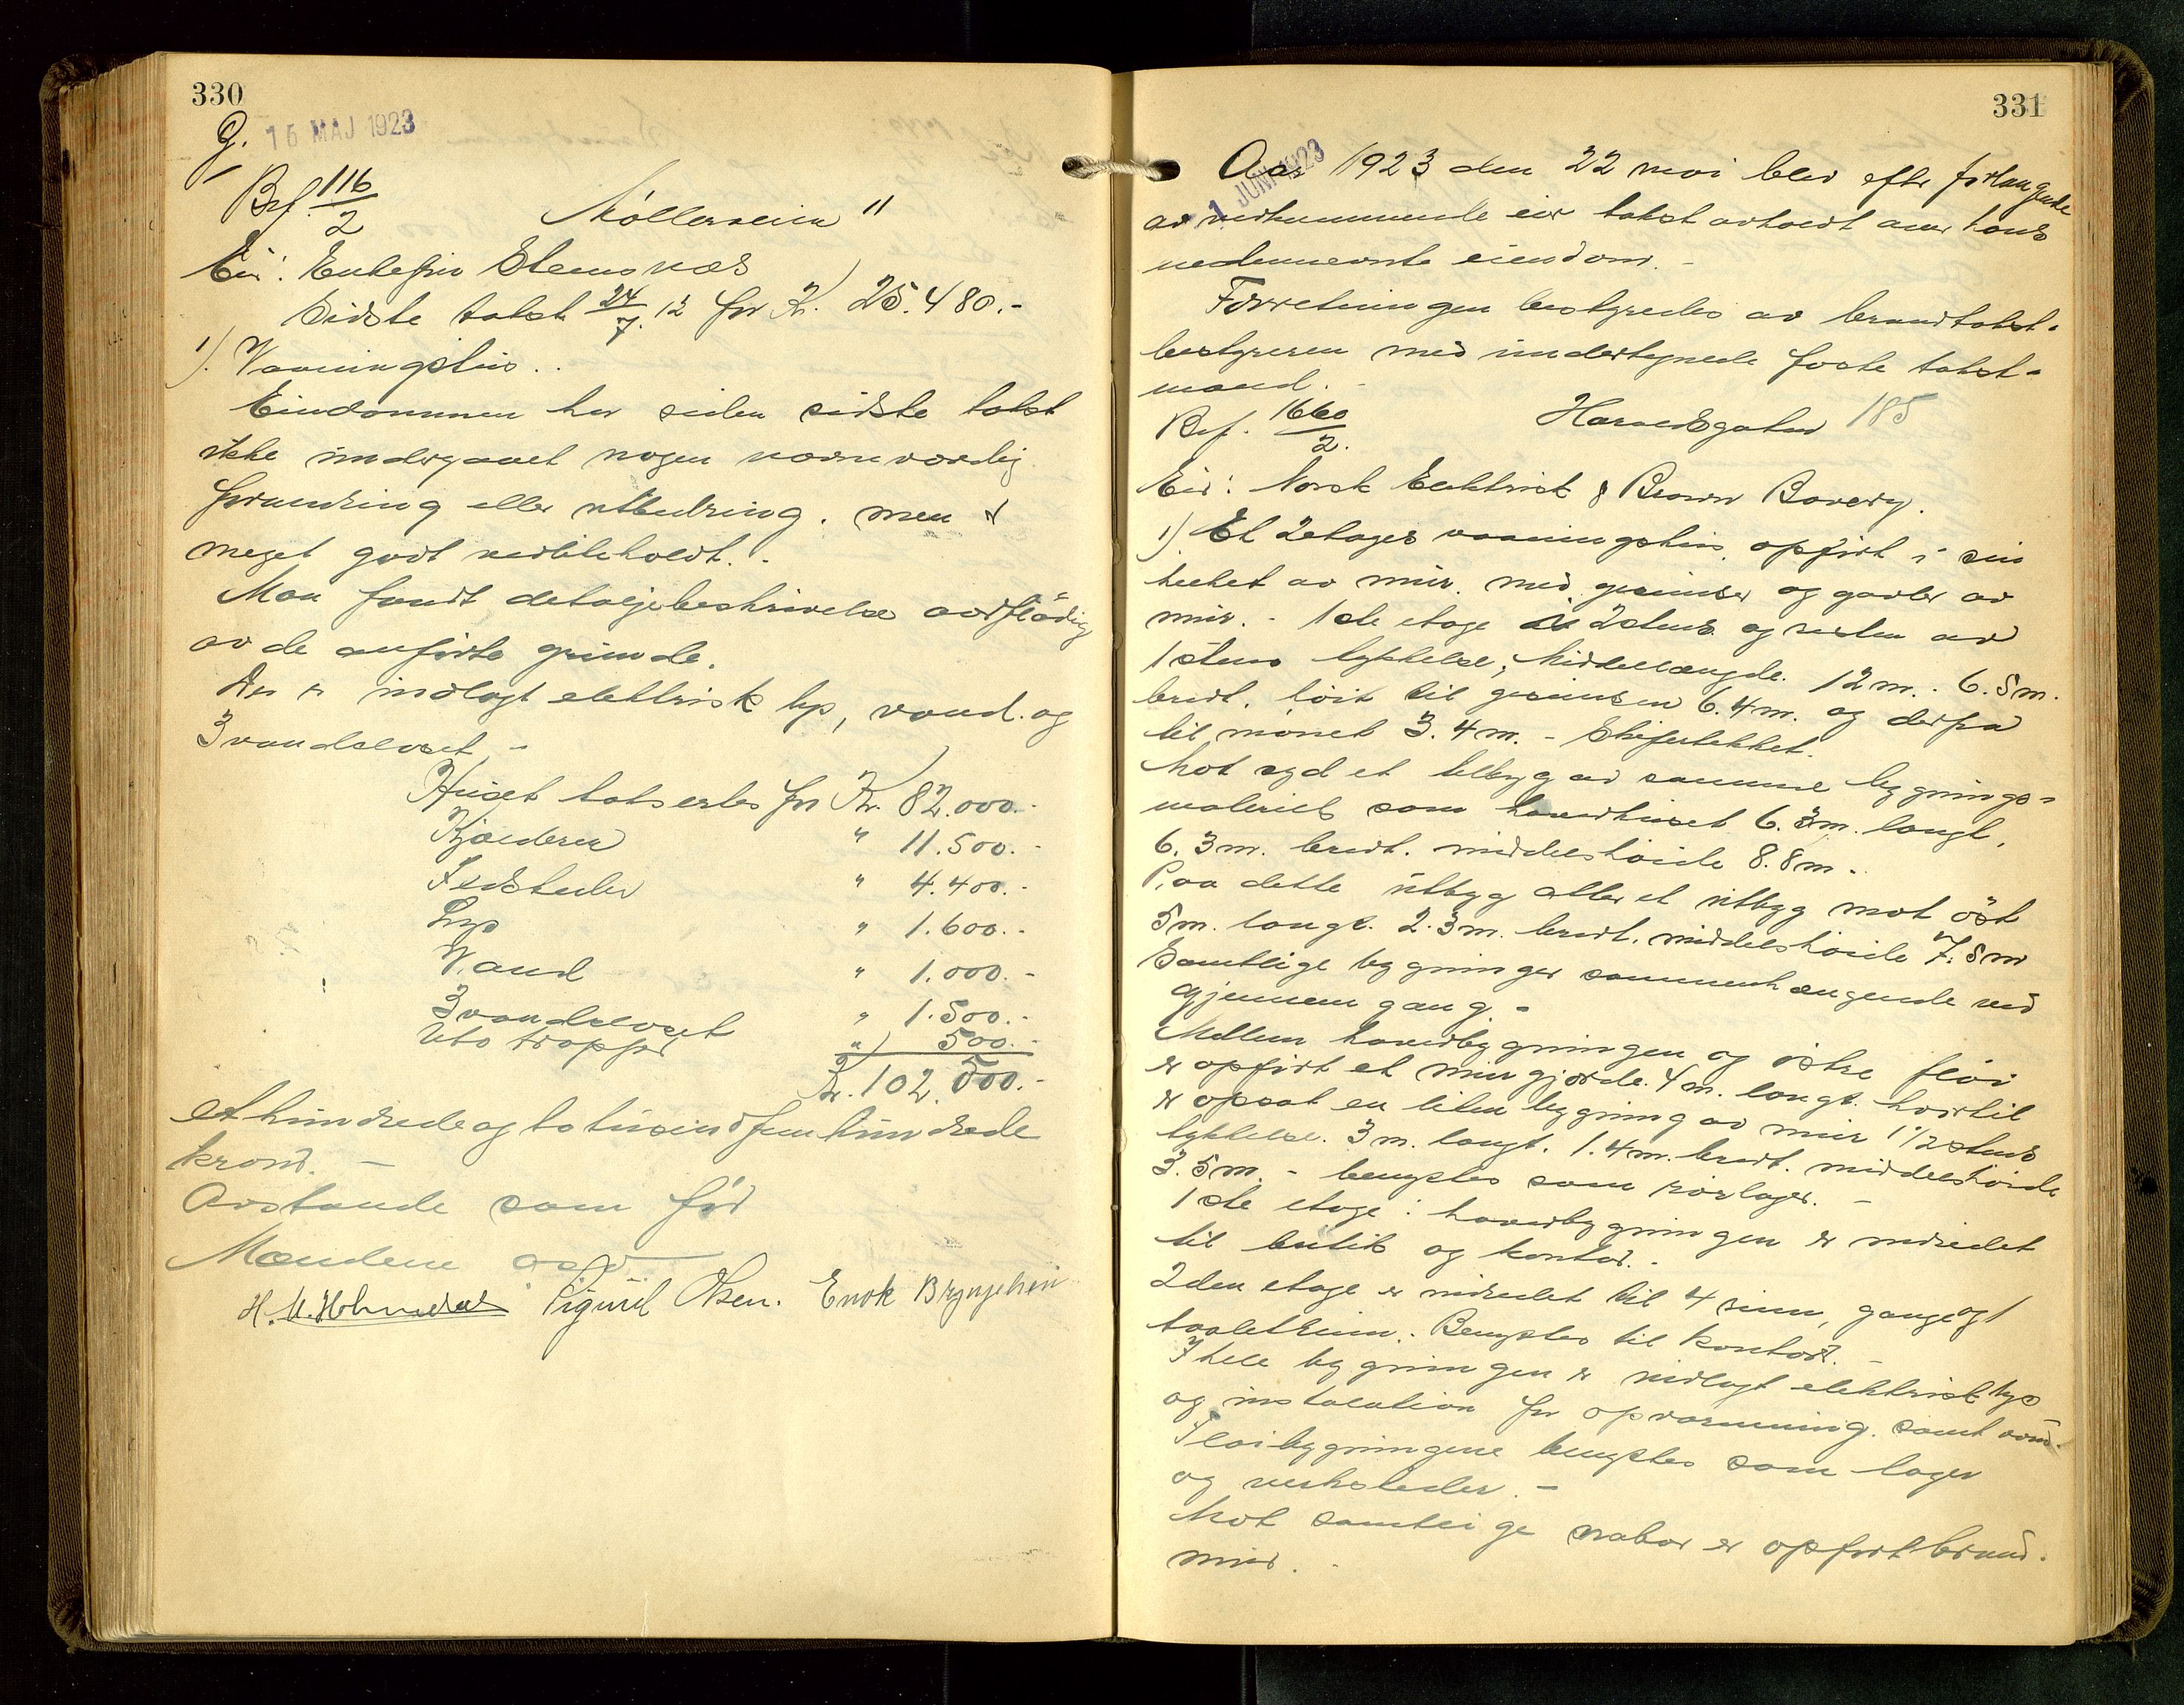 330
G. 16 MAJ 1923
Brf. 116/2 Møllerveien 11
Eier: Enkefru Stensnæs
Sidste takst 24/7.12 for Kr. 25.480.-
1). Vaaningshus..
Eiendommen har siden sidste takst
ikke undergaaet nogen nævneværdig
forandring eller utbedring. men er
meget godt vedlikeholdt.-
Man fandt detaljebeskrivelse overflödig
av de anførte grunde.
Der er indlagt elektrisk lys, vand. og
3 vandcloset -
Huset takseertes for Kr. 82.000.-
Kjælderen " 11.500.-
Ildsteder " 4.400.-
Lys " 1.600.-
Vand " 1.000.-
3 vandcloset " 1.500.-
Utv trapper " 500.-
Kr. 102.500.-
et hundrede og to tusind fem hundrede
kroner. -
Avstande som før
Mændene
Sigurd Olsen. Enok Brynjelsen
331
1 JUNI 1923
Aar 1923 den 22 mai blev efter forlangende
av vedkommende eier takst avholdt over hans
nedennævnte eiendom.-
Forretningen bestyredes av brandtakst-
bestyreren med undertegnede faste takst-
mænd.-
Brf. 1660/2. Haraldsgaten 185
Eier: Norsk Elektrisk & Brown Bovery.
1). Et 2etages vaaningshus opført i sin
helhet av mur. med gesimser og gavler av
mur. - 1ste etage av 2stens og resten av
1 stens tykkelse; Middellængde. 12m. - 6.5m.
bredt, høit til gesimsen 6.4m. og derfra
til mønet 3.4m. - Skifertekket.
Mot syd et tilbyg av samme bygnings-
materiel som hovedhuset 6.3m. langt,
6.3m. bredt. middelshøide 8.8m.-
Paa dette utbyg atter et utbyg mot öst
5m. langt. 2.3m. bredt. middelshøide 7.5m
Samtlige bygninger sammenhængende ved
gjennemgang.-
Mellem hovedbygningen og østre fløi
er opført et murgjærde. 4m. langt. hvortil
er opsat en liten bygning av mur 1 1/2 stens
tykkelse. 3m. langt. 1.4m. bredt. middelshøide
3.5m. - benyttes som rørlager. -
1ste etage i hovedbygningen er indredet
til butik og kontor.-
2den etage er indredet til 4 rum, gang og 1
toaletrum. Benyttes til kontor. -
I hele bygningen er indlagt elektrisk lys
og instalation for opvarmning. samt vand.-
Fløibygningene benyttes som lager
og verksteder. -
Mot samtlige naboer er opført brand-
mur. -